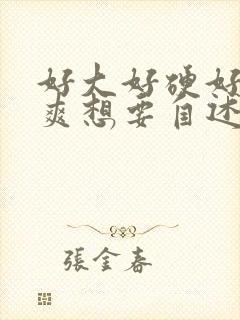 好大好硬好
爽想要自述
張金春